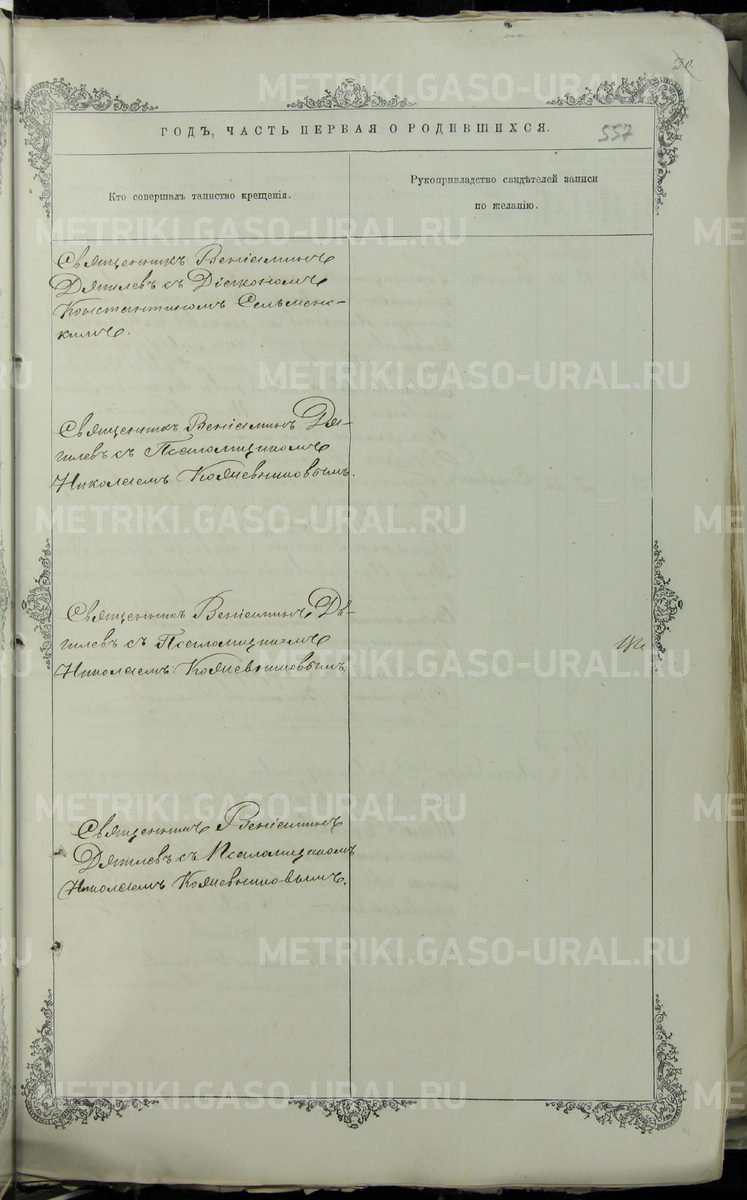 30
ГОДЪ, ЧАСТЬ ПЕРВАЯ О РОДИВШИХСЯ.
557
Кто совершалъ таинство крещенія.
Рукоприкладство свидѣтелей записи
по желанію.
Священникъ Веніаминъ
Дягилевъ съ Діакономъ
Константиномъ Сельменс-
кимъ.
Священникъ Веніаминъ Дя-
гилевъ съ Псаломщикомъ
Николаемъ Кожевниковымъ.
Священникъ Веніаминъ Дя-
гилевъ съ Псаломщикомъ
Николаемъ Кожевниковымъ
Священникъ Веніаминъ
Дягилевъ съ Псаломщикомъ
Николаемъ Кожевниковымъ.
METRIKI.GASO-URAL.RU